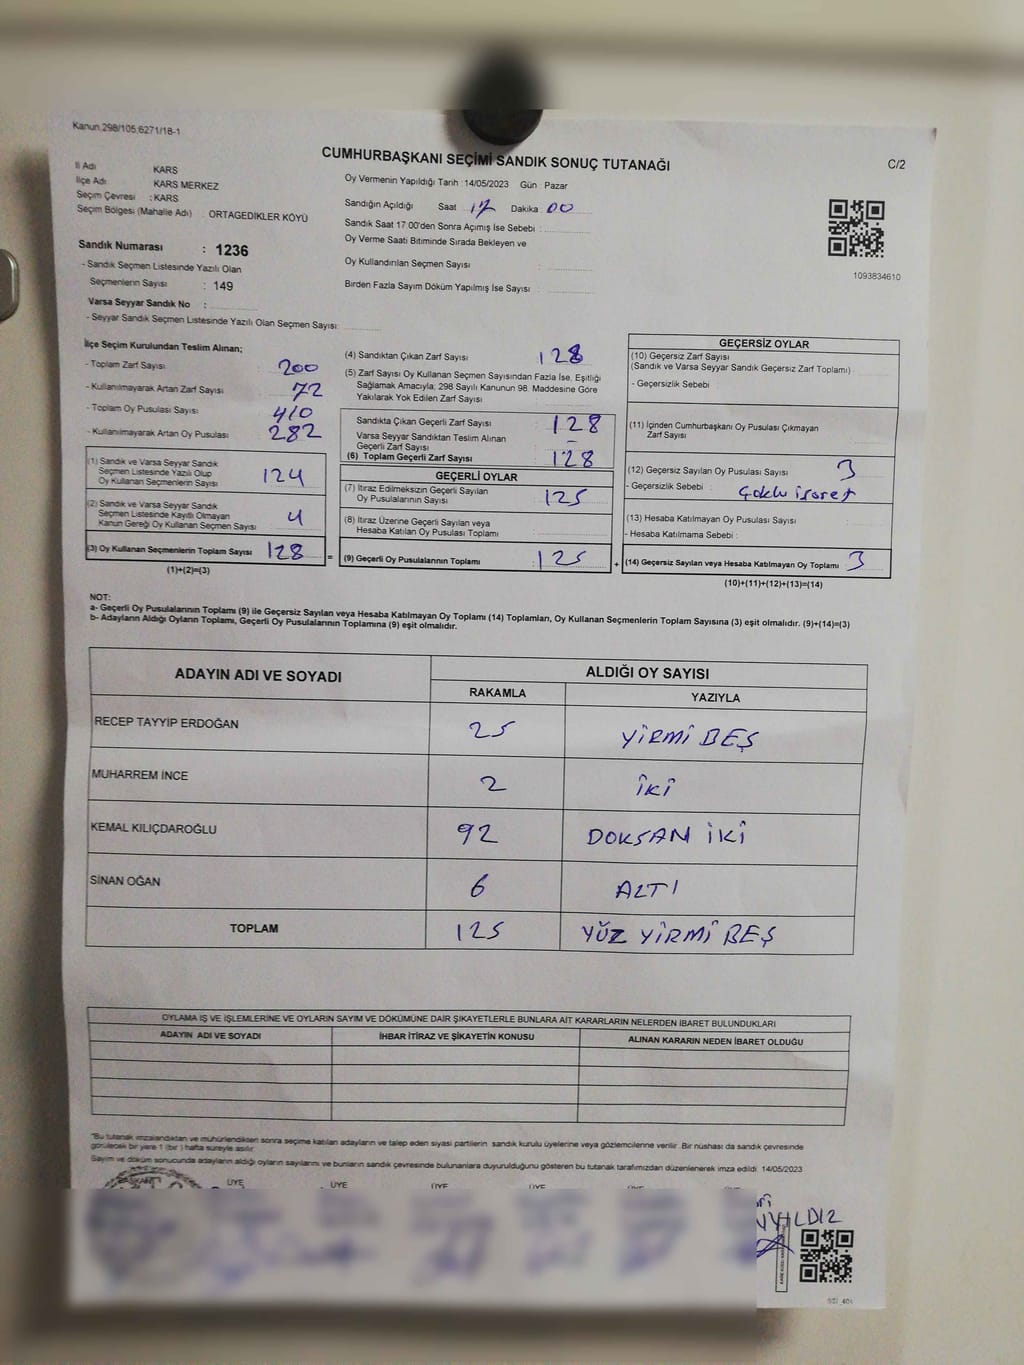 Kanun.298/105;6271/18-1
CUMHURBAŞKANI SEÇİMİ SANDIK SONUÇ TUTANAĞI
C/2
İl Adı KARS
İlçe Adı KARS MERKEZ
Seçim Çevresi : KARS
Seçim Bölgesi (Mahalle Adı) : ORTAGEDİKLER KÖYÜ
Sandık Numarası : 1236
- Sandık Seçmen Listesinde Yazılı Olan
Seçmenlerin Sayısı : 149
Varsa Seyyar Sandık No :
- Seyyar Sandık Seçmen Listesinde Yazılı Olan Seçmen Sayısı:
Oy Vermenin Yapıldığı Tarih 14/05/2023 Gün : Pazar
Sandığın Açıldığı Saat 17 Dakika : 00
Sandık Saat 17 00'den Sonra Açımış İse Sebebi :
Oy Verme Saati Bitiminde Sırada Bekleyen ve
Oy Kullandırılan Seçmen Sayısı :
Birden Fazla Sayım Döküm Yapılmış İse Sayısı :
1093834610
İlçe Seçim Kurulundan Teslim Alınan;
- Toplam Zarf Sayısı : 200
- Kullanılmayarak Artan Zarf Sayısı : 72
- Toplam Oy Pusulası Sayısı : 410
- Kullanılmayarak Artan Oy Pusulası : 282
(1) Sandık ve Varsa Seyyar Sandık
Seçmen Listesinde Yazılı Olup
Oy Kullanan Seçmenlerin Sayısı 124
(2) Sandık ve Varsa Seyyar Sandık
Seçmen Listesinde Kayıtlı Olmayan
Kanun Gereği Oy Kullanan Seçmen Sayısı 4
(3) Oy Kullanan Seçmenlerin Toplam Sayısı 128 =
(1)+(2)=(3)
(4) Sandıktan Çıkan Zarf Sayısı : 128
(5) Zarf Sayısı Oy Kullanan Seçmen Sayısından Fazla İse, Eşitliği
Sağlamak Amacıyla; 298 Sayılı Kanunun 98. Maddesine Göre
Yakılarak Yok Edilen Zarf Sayısı :
Sandıkta Çıkan Geçerli Zarf Sayısı : 128
Varsa Seyyar Sandıktan Teslim Alınan
Geçerli Zarf Sayısı : -
(6) Toplam Geçerli Zarf Sayısı : 128
GEÇERLİ OYLAR
(7) İtiraz Edilmeksizin Geçerli Sayılan
Oy Pusulalarının Sayısı : 125
(8) İtiraz Üzerine Geçerli Sayılan veya
Hesaba Katılan Oy Pusulası Toplamı :
(9) Geçerli Oy Pusulalarının Toplamı : 125 +
GEÇERSİZ OYLAR
(10) Geçersiz Zarf Sayısı
(Sandık ve Varsa Seyyar Sandık Geçersiz Zarf Toplamı)
- Geçersizlik Sebebi :
(11) İçinden Cumhurbaşkanı Oy Pusulası Çıkmayan
Zarf Sayısı :
(12) Geçersiz Sayılan Oy Pusulası Sayısı : 3
- Geçersizlik Sebebi : Çoklu işaret
(13) Hesaba Katılmayan Oy Pusulası Sayısı :
- Hesaba Katılmama Sebebi :
(14) Geçersiz Sayılan veya Hesaba Katılmayan Oy Toplamı : 3
(10)+(11)+(12)+(13)=(14)
NOT:
a- Geçerli Oy Pusulalarının Toplamı (9) ile Geçersiz Sayılan veya Hesaba Katılmayan Oy Toplamı (14) Toplamları, Oy Kullanan Seçmenlerin Toplam Sayısına (3) eşit olmalıdır. (9)+(14)=(3)
b- Adayların Aldığı Oyların Toplamı, Geçerli Oy Pusulalarının Toplamına (9) eşit olmalıdır.
ADAYIN ADI VE SOYADI ALDIĞI OY SAYISI
RAKAMLA YAZIYLA
RECEP TAYYİP ERDOĞAN 25 YİRMİ BEŞ
MUHARREM İNCE 2 İKİ
KEMAL KILIÇDAROĞLU 92 DOKSAN İKİ
SİNAN OĞAN 6 ALTI
TOPLAM 125 YÜZ YİRMİ BEŞ
OYLAMA İŞ VE İŞLEMLERİNE VE OYLARIN SAYIM VE DÖKÜMÜNE DAİR ŞİKAYETLERLE BUNLARA AİT KARARLARIN NELERDEN İBARET BULUNDUKLARI
ADAYIN ADI VE SOYADI İHBAR İTİRAZ VE ŞİKAYETİN KONUSU ALINAN KARARIN NEDEN İBARET OLDUĞU
"Bu tutanak imzalandıktan ve mühürlendikten sonra seçime katılan adayların ve talep eden siyasi partilerin sandık kurulu üyelerine veya gözlemcilerine verilir. Bir nüshası da sandık çevresinde
görülecek bir yere 1 (bir) hafta süreyle asılır.
Sayım ve döküm sonucunda adayların aldığı oyların sayılarını ve bunların sandık çevresinde bulunanlara duyurulduğunu gösteren bu tutanak tarafımızdan düzenlenerek imza edildi. 14/05/2023
BAŞKAN ÜYE ÜYE ÜYE ÜYE